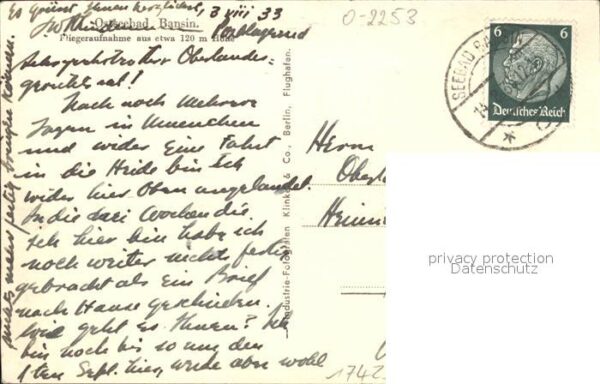 Es grüsst Ihnen herzlichst,
3 VIII 33
O-2253
Ostseebad Bansin.
Fliegeraufnahme aus etwa 120 m Höhe
Sehr geehrter Herr Oberlandes-
gerichtsrat!
Nach noch mehrere
Tagen in Muenchen
und wider Eine Fahrt
in die Heide bin Ich
wider hier Oben angelandet.
In die drei Wochen die
ich hier bin habe ich
noch weiter nichts fertig
gebracht als Ein Brief
nach Hause geschieden.
Wie geht es Ihnen? Ich
bin noch bis so um den
1ten Sept. hier, werde aber wohl
nichts mehr fertig bringen können.
Industrie-Fotografen Klinke & Co., Berlin, Flughafen.
SEEBAD
6 6
Deutsches Reich
Herrn
Heinri
privacy protection
Datenschutz